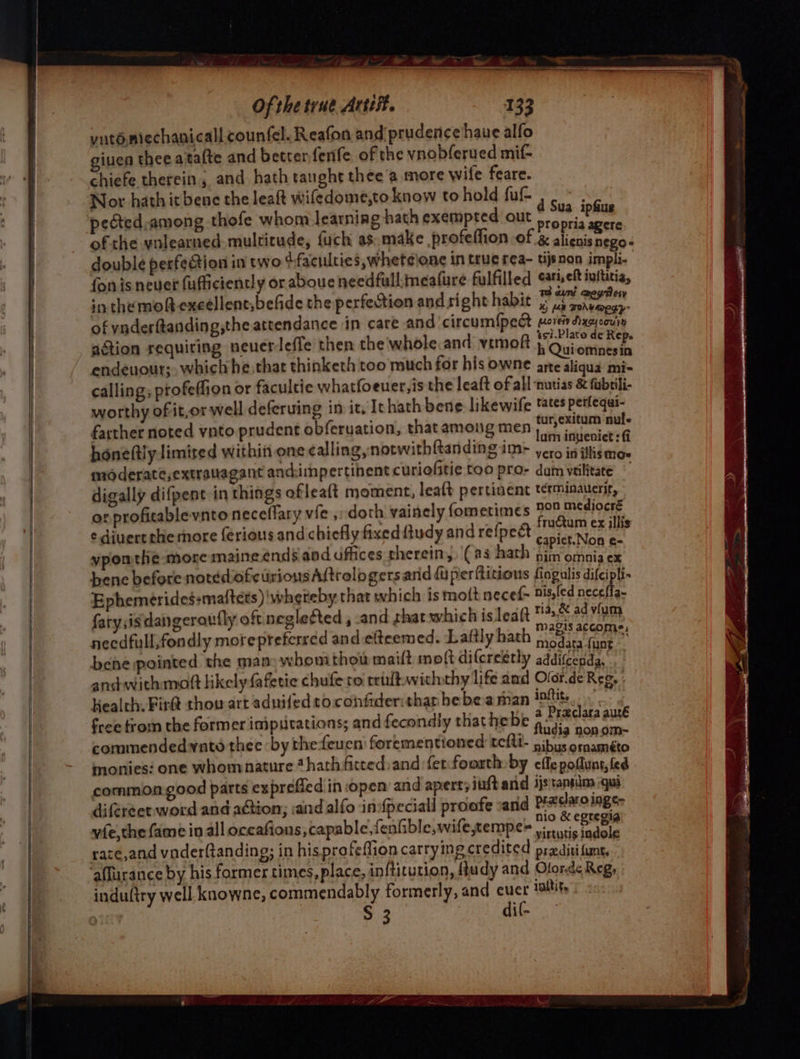 Of the true Artist. 133
vnto mechanicall counsel. Reason and prudence haue also
giuen thee a taste and better sense of the vnobserued mis-
chiefe therein, and hath taught thee a more wise feare.
Nor hath it bene the least wisedome, to know to hold sus-
pected among those whom learning hath exempted out
of the vnlearned multitude, such as make profession of
double perfection in two d faculties, whereone in true rea-
son is neuer sufficiently or aboue needfull measure fulfilled
in the most excellent, beside the perfection and right habit
of vnderstanding, the attendance in care and circumspect
action requiring neuer lesse then the whole and vtmost
endeuour; which he that thinketh too much for his owne
calling, profession or facultie whatsoeuer, is the least of all
worthy of it, or well deseruing in it. It hath bene likewise
farther noted vnto prudent obseruation, that among men
honestly limited within one calling, notwithstanding im-
moderate, extrauagant and impertinent curiositie too pro-
digally dispent in things of least moment, least pertinent
or profitable vnto necessary vse, doth vainely sometimes
e diuert the more serious and chiefly fixed study and respect
vpon the more maine ends and offices therein, (as hath
bene before noted of curious Astrologers and superstitious
Ephemerides-masters) whereby that which is most neces-
sary, is dangerously oft neglected, and that which is least
needfull, fondly more preferred and esteemed. Lastly hath
bene pointed the man, whom thou maist most discreetly
and with most likely safetie chuse to trust with thy life and
health. First thou art aduised to consider, that he be a man
free from the former imputations; and secondly that he be
commended vnto thee by the seuen forementioned testi-
monies: one whom nature hath fitted, and set foorth by
common good parts expressed in open and apert, iust and
discreet word and action, and also in speciall proofe and
vse, the same in all occasions, capable, sensible, wise, tempe-
rate, and vnderstanding; in his profession carrying credited
assurance by his former times, place, institution, study and
industry well knowne, commendably formerly, and euer
S 3 dis-
d Sua ipsius
propria agere
& alienis nego-
tijs non impli-
cari, est iustitia,
Plato de Rep.
h Qui omnes in
arte aliqua mi-
nutias & subtili-
tates persequi-
tur, exitum nul-
lum inueniet: si
vero in illis mo-
dum vtilitate
terminauerit,
non mediocrē
fructum ex illis
capiet. Non e-
nim omnia ex
singulis discipli-
nis, sed necessa-
ria, & ad vsum
magis accome-
modata sunt
addiscenda.
Osor. de Reg.
instit.
a Præclara autē
studia non om-
nibus ornamēto
esse possunt, sed
ijs tantùm qui
præclaro inge-
nio & egregia
virtutis indole
præditi sunt.
Osor. de Reg.
instit.